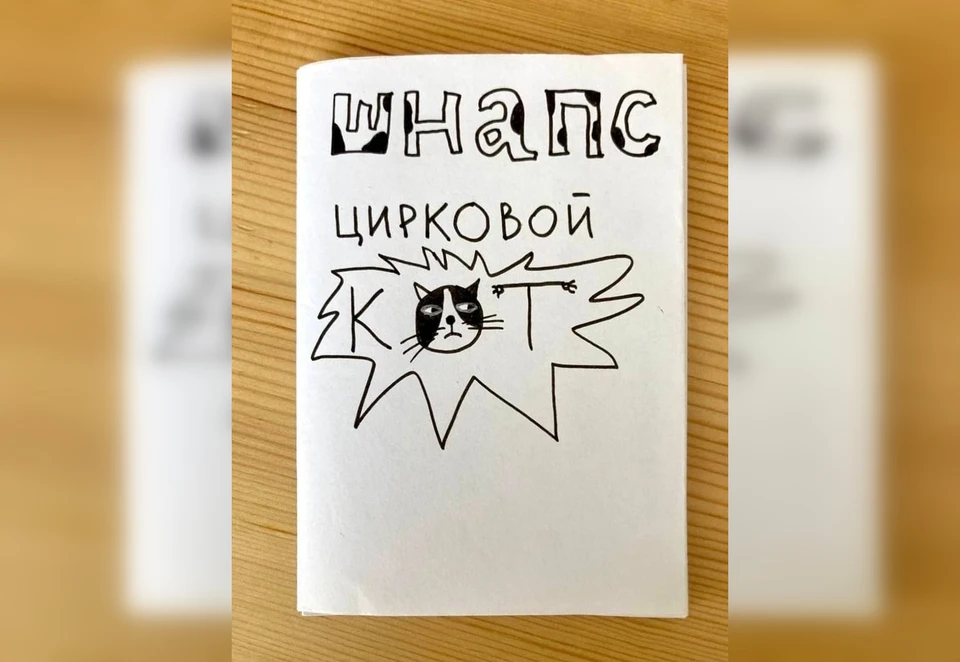 Шнапс
ЦИРКОВОЙ
КОТ